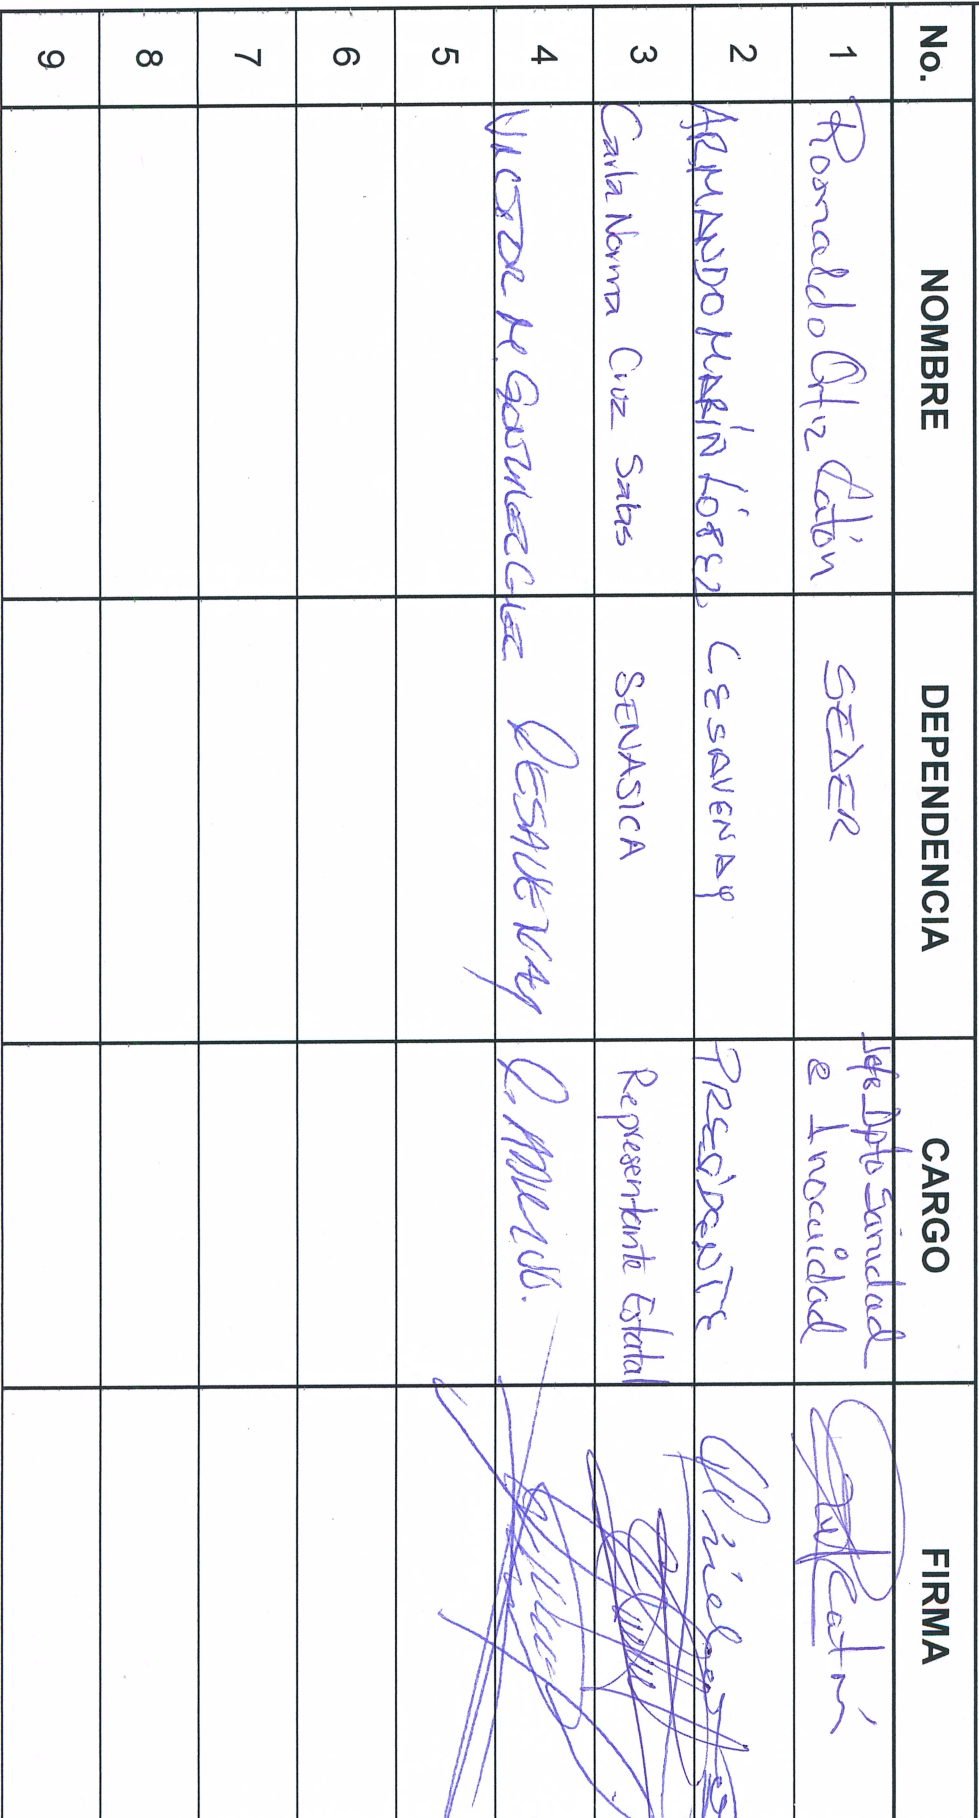 No. NOMBRE DEPENDENCIA CARGO FIRMA
1 Romaldo Ortiz Catón SEDER Jefe Dpto Sanidad
e Inocuidad
2 ARMANDO MARÍN LÓPEZ CESAVENAY PRESIDENTE
3 Carla Norma Cruz Salas SENASICA Representante Estatal
4 VICTOR M. CESAVENAY
5
6
7
8
9